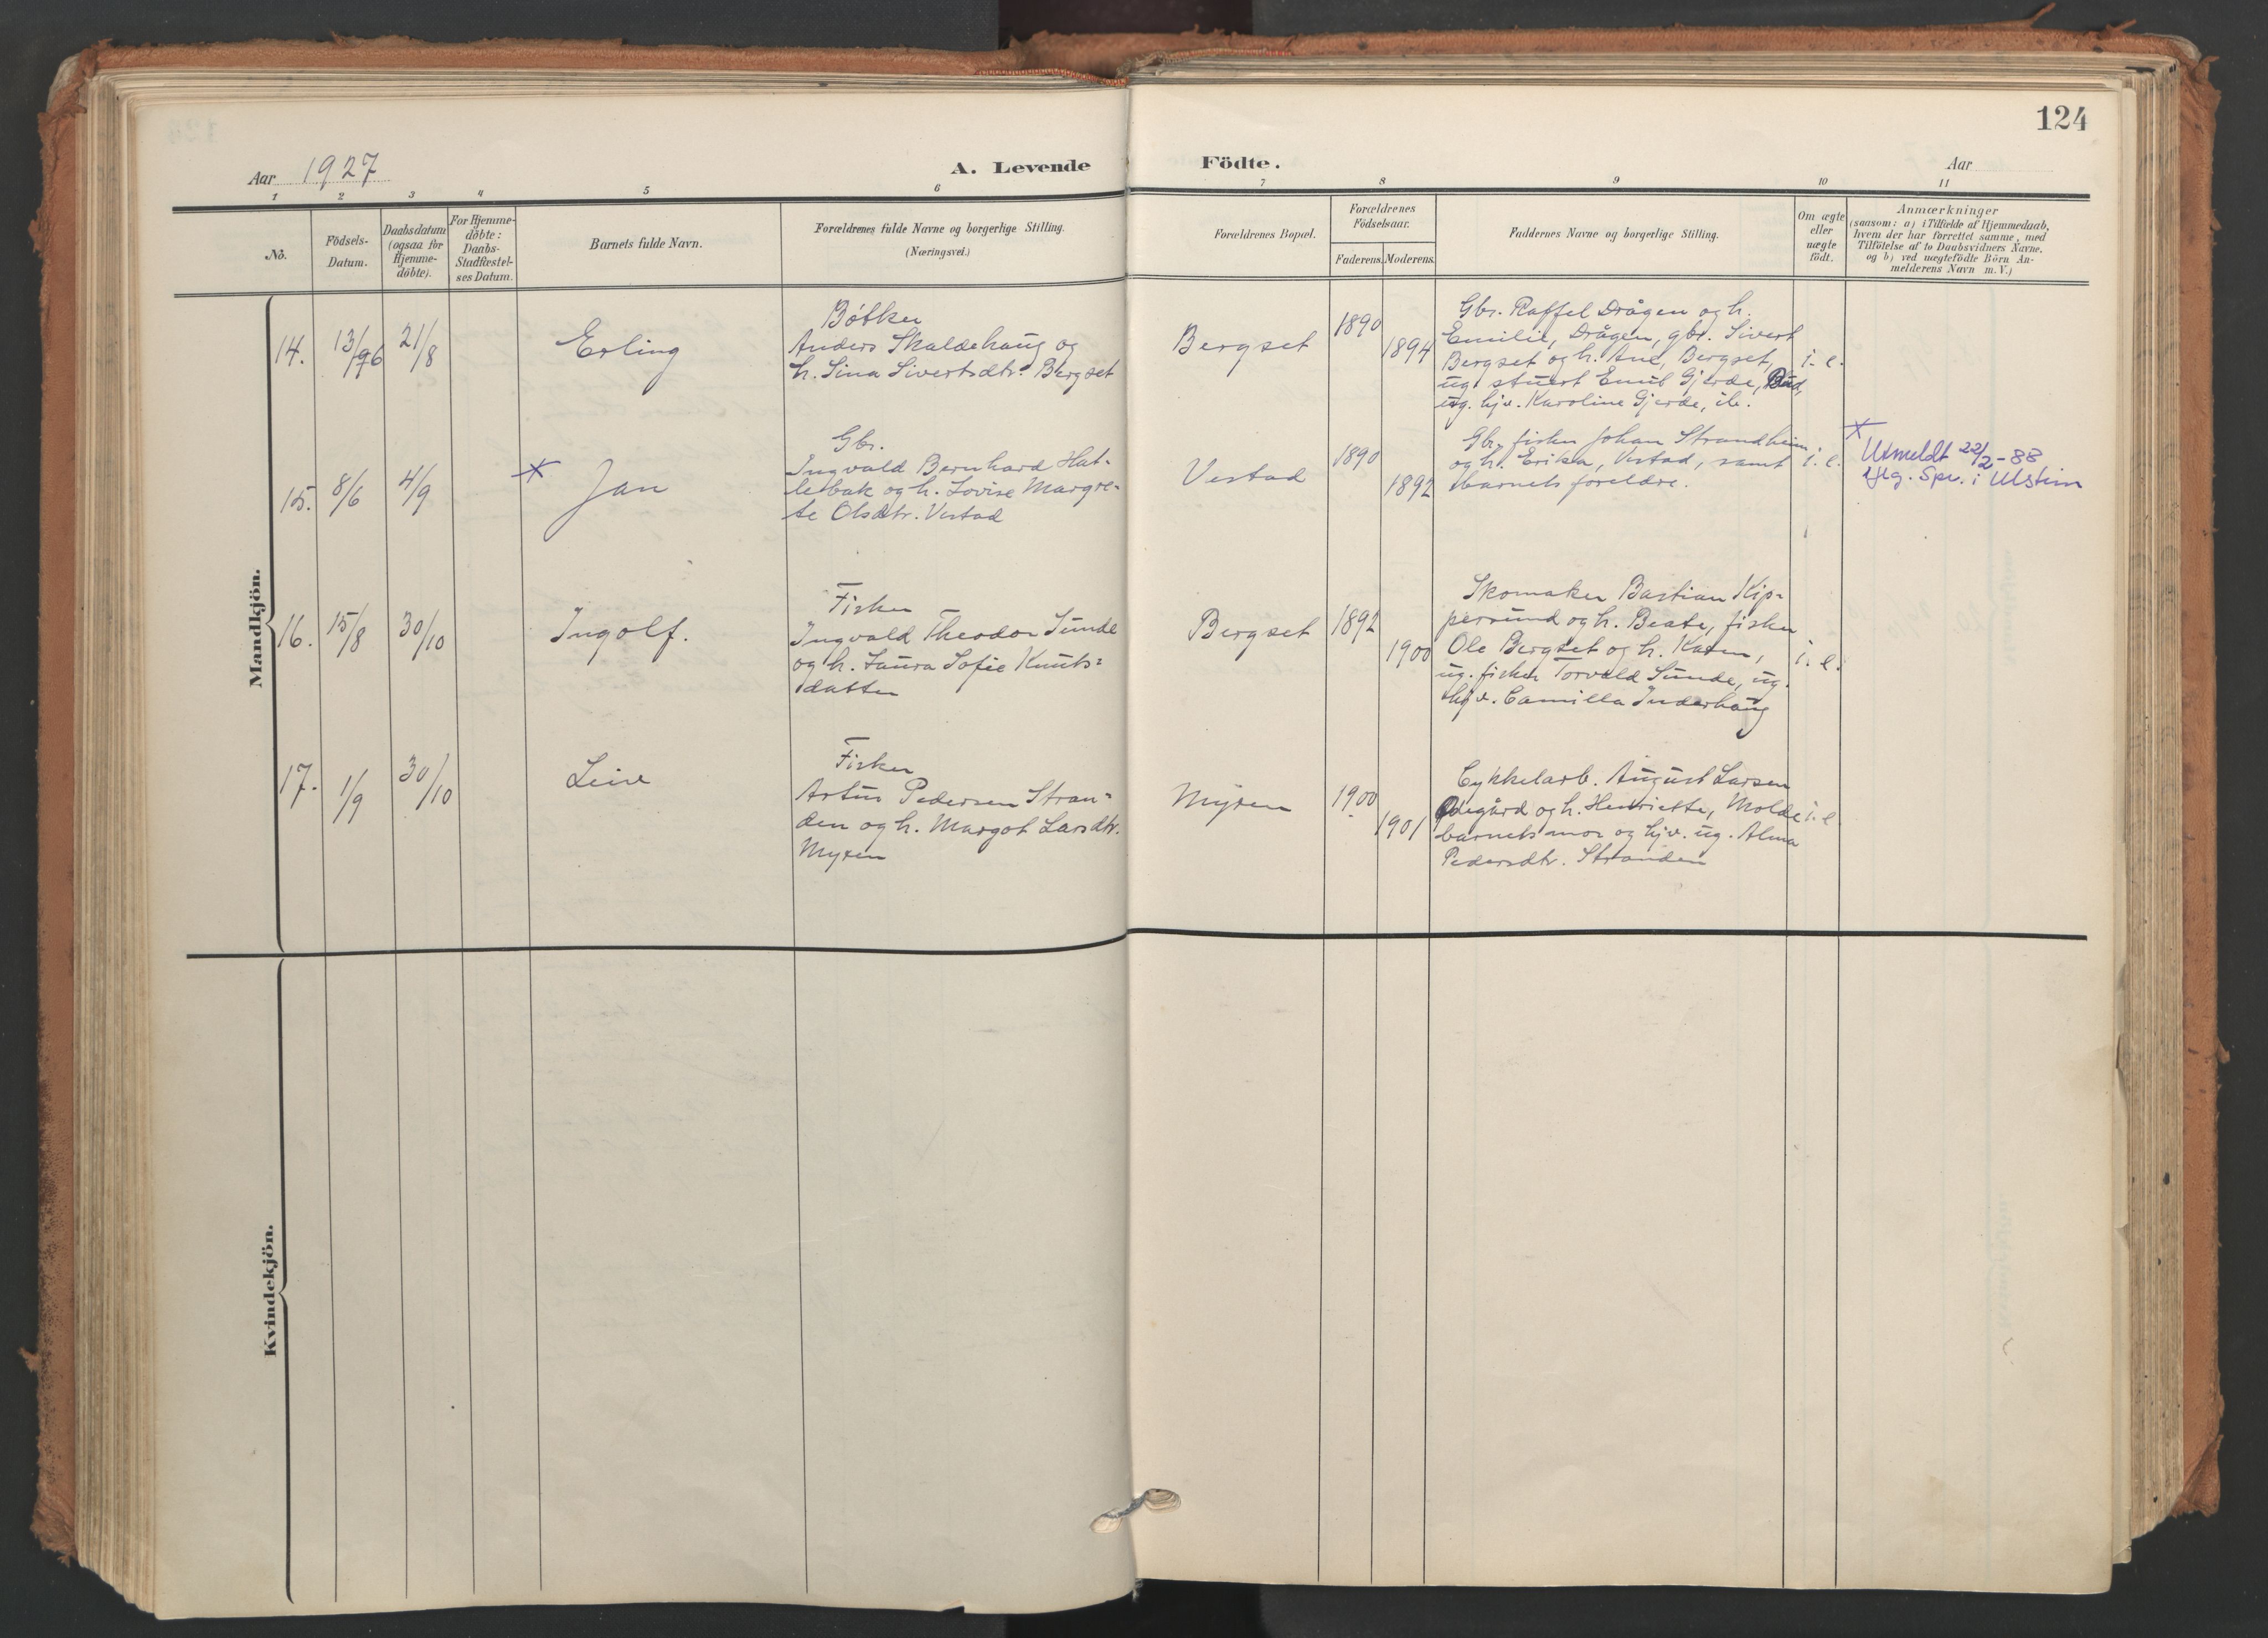 124
Aar 1927
A. Levende
Födte.
Aar
1 2 3 4 5 6 7 8 9 10 11
No.
Födsels-
Datum.
Daabsdatum
(ogsaa for
Hjemme-
döbte).
For Hjemme-
döbte:
Daabs-
Stadfæstel-
ses Datum.
Barnets fulde Navn.
Forældrenes fulde Navne og borgerlige Stilling.
(Næringsvei.)
Forældrenes Bopæl.
Forældrenes
Födselsaar.
Faderens. Moderens.
Faddernes Navne og borgerlige Stilling.
Om ægte
eller
uægte
födt.
Anmærkninger
(saasom: a) i Tilfælde af Hjemmedaab,
hvem der har forrettet samme, med
Tilföielse af to Daabsvidners Navne.
og b) ved uægtefödte Börn An-
melderens Navn m. V.)
Mandkjön.
14.
21/8
Erling
Bøtker
Anders Skaldehaug og
h. Sina Sivertsdtr. Bergset
Bergset
1890
1894
Gbr. Raffel Drågen og h.
Emilie, Drågen, gbr. Sivert
Bergset og h. Ane, Bergset,
ug. stuert Emil Gjerde, Bud,
ug. hjv. Karoline Gjerde, ib.
i. e.
15.
8/6
4/9
* Jan
Gbr.
Ingvald Bernhard Hat-
lebak og h. Lovise Margre-
te Olsdtr. Vestad
Vestad
1890
1892
Gbr., fisker Johan Strandheim
og h. Erika, Vestad, samt
barnets foreldre.
i. e.
*
Utmeldt 22/2-88
Spr. i Ulstein
16.
15/8
30/10
Ingolf.
Fisker
Ingvald Theodor Sunde
og h. Laura Sofie Knuts-
datter
Bergset
1892
1900
Skomaker Bastian Kip-
persund og h. Beate, fisker
Ole Bergset og h. Karen,
ug. fisker Torvald Sunde, ug.
hjv. Camilla Inderhaug
i. e.
17.
1/9
30/10
Leiv
Fisker
Artur Pedersen Stran-
den og h. Margot Larsdtr.
Myren
Myren
1900
1901
Cykkelarb. August Larsen
Ødegård og h. Henriette, Molde
barnets mor og hjv. ug. Alma
Pedersdtr. Stranden
i. e.
Kvindekjön.